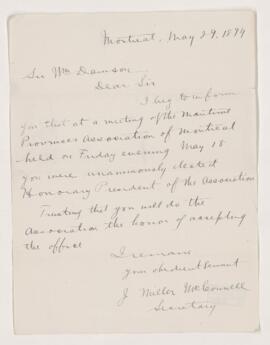 Montreal, May 29, 1894
Sir Wm Dawson
Dear Sir
I beg to inform
you that at a meeting of the Maritime
Provinces Association of Montreal
held on Friday evening May 18
you were unanimously elected
Honorary President of the Association
Trusting that you will do the
Association the honor of accepting
the office
I remain
your obedient servant
J Miller McConnell
Secretary